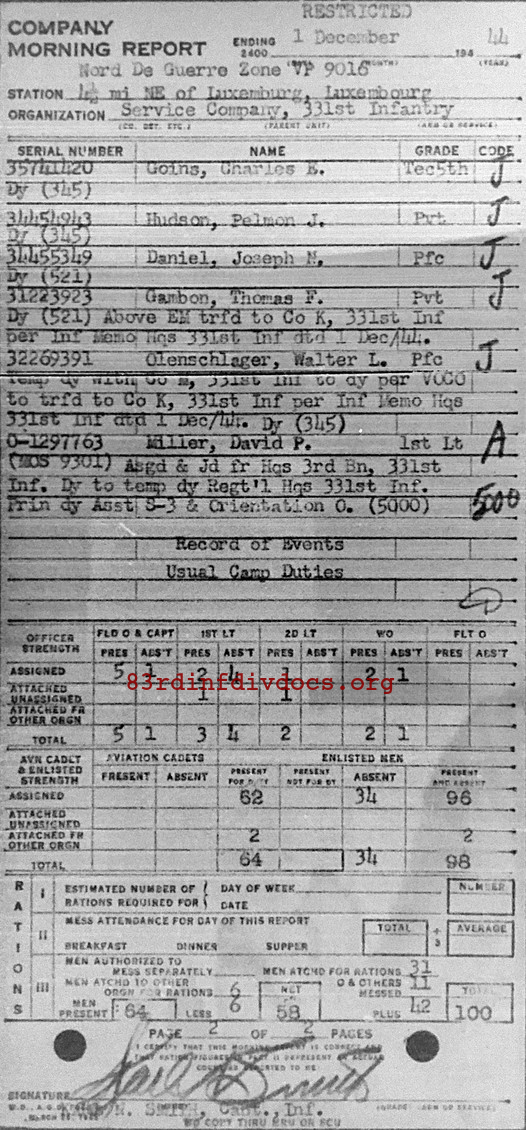 RESTRICTED
COMPANY
MORNING REPORT ENDING 2400 1 December 194 44
(MONTH) (YEAR)
Nord De Guerre Zone VP 9016
STATION 4½ mi NE of Luxemburg, Luxembourg
ORGANIZATION Service Company, 331st Infantry
(CO. DET. ETC.) (PARENT UNIT) (ARM OR SERVICE)
SERIAL NUMBER NAME GRADE CODE
35741420 Goins, Charles E. Tec5th J
Dy (345)
34454943 Hudson, Pelmon J. Pvt J
Dy (345)
34455349 Daniel, Joseph N. Pfc J
Dy (521)
31223923 Gambon, Thomas F. Pvt J
Dy (521) Above EM trfd to Co K, 331st Inf
per Inf Memo Hqs 331st Inf dtd 1 Dec/44.
32269391 Olenschlager, Walter L. Pfc J
Temp dy with Co M, 331st Inf to dy per VOCO
to trfd to Co K, 331st Inf per Inf Memo Hqs
331st Inf dtd 1 Dec/44. Dy (345)
O-1297763 Miller, David P. 1st Lt A
(MOS 9301) Asgd & Jd fr Hqs 3rd Bn, 331st
Inf. Dy to temp dy Regt'l Hqs 331st Inf.
Prin dy Asst S-3 & Orientation O. (5000) 5000
Record of Events
Usual Camp Duties
OFFICER STRENGTH FLD O & CAPT 1ST LT 2D LT WO FLT O
PRES ABS'T PRES ABS'T PRES ABS'T PRES ABS'T PRES ABS'T
ASSIGNED 5 1 2 4 1 2 1
83rdinfdivdocs.org
ATTACHED UNASSIGNED 1 1
ATTACHED FR OTHER ORGN
TOTAL 5 1 3 4 2 2 1
AVN CADET & ENLISTED STRENGTH AVIATION CADETS ENLISTED MEN
PRESENT ABSENT PRESENT FOR DUTY PRESENT NOT FOR DY ABSENT PRESENT AND ABSENT
ASSIGNED 62 34 96
ATTACHED UNASSIGNED
ATTACHED FR OTHER ORGN 2 2
TOTAL 64 34 98
RATIONS
I ESTIMATED NUMBER OF RATIONS REQUIRED FOR { DAY OF WEEK DATE NUMBER
II MESS ATTENDANCE FOR DAY OF THIS REPORT
BREAKFAST DINNER SUPPER TOTAL ÷ 3 AVERAGE
III MEN AUTHORIZED TO MESS SEPARATELY MEN ATCHD FOR RATIONS 31
MEN ATCHD TO OTHER ORGN FOR RATIONS 6 NET O & OTHERS MESSED 11 TOTAL
MEN PRESENT 64 LESS 6 58 PLUS 42 100
PAGE 2 OF 2 PAGES
I CERTIFY THAT THIS MORNING REPORT IS CORRECT AND
THAT RATION FIGURES IN PART II REPRESENT AN ACTUAL
COUNT AS REPORTED TO ME
SIGNATURE
SMITH, Capt., Inf.
(GRADE) (ARM OR SERVICE)
W.D., A.G.O. FORM
MARCH
WD COPY THRU MRU OR RCU